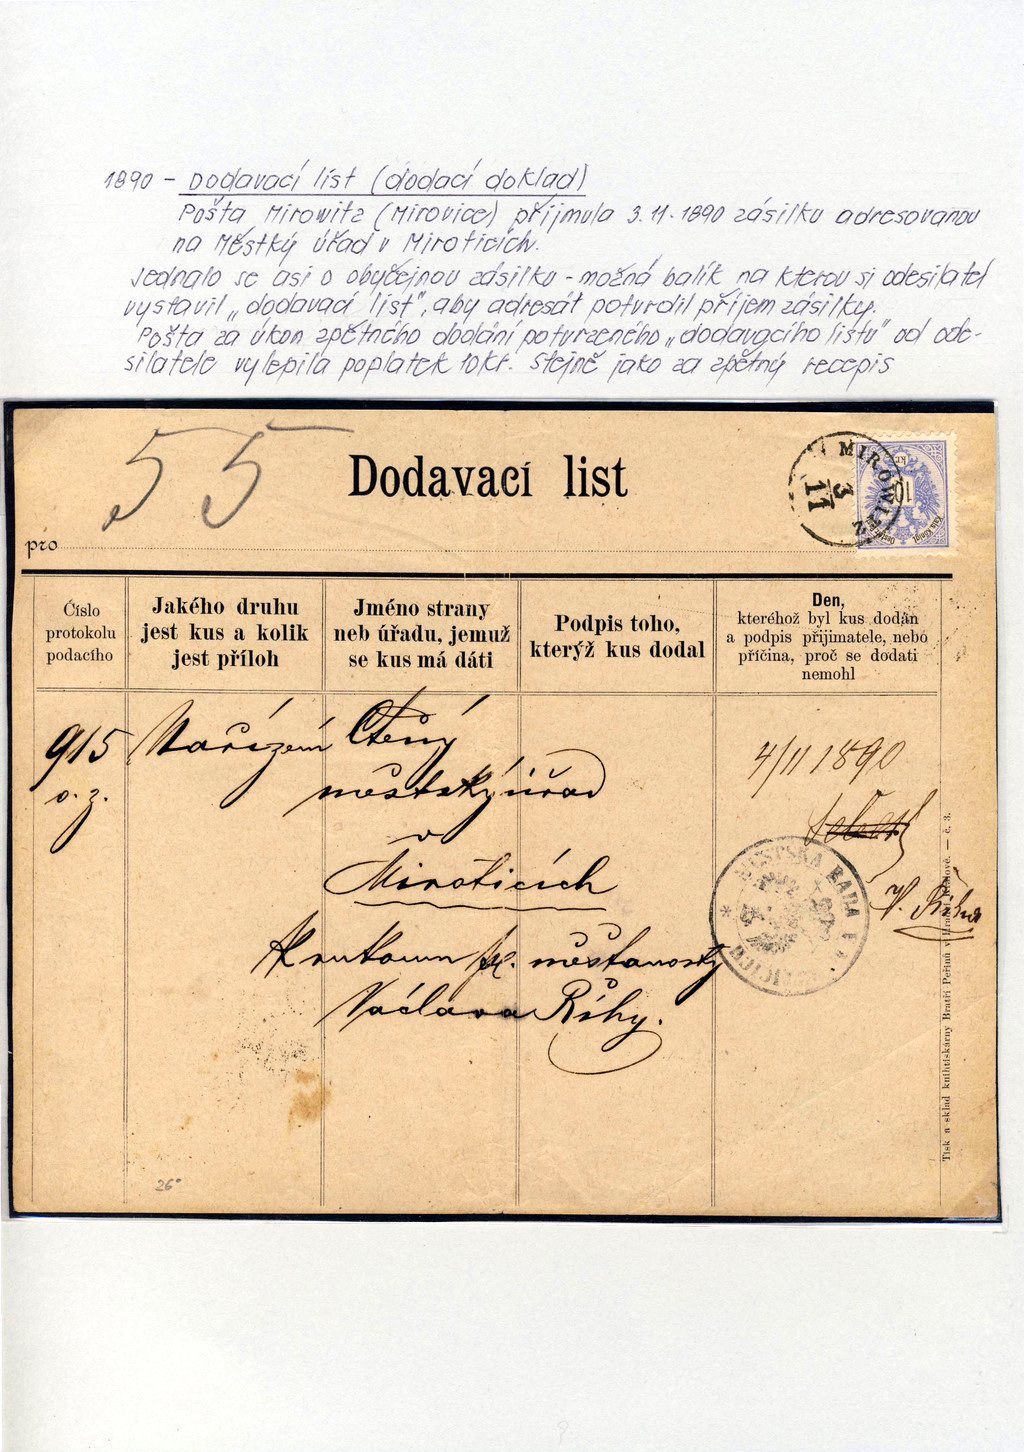 1890 - Dodavací list (dodací doklad)
Pošta Mirowitz (Mirovice) přijmula 3.11.1890 zásilku adresovanou
na Městký úřad v Miroticích.
Jednalo se asi o obyčejnou zásilku - možná balík na kterou si odesilatel
vystavil „dodavací list", aby adresát potvrdil příjem zásilky.
Pošta za úkon zpětného dodání potvrzeného „dodavacího listu" od ode-
silatele vylepila poplatek 10kr. stejně jako za zpětný recepis
55
Dodavací list
MIROWITZ
3
11
10
kr.
pro
Číslo
protokolu
podacího
Jakého druhu
jest kus a kolik
jest příloh
Jméno strany
neb úřadu, jemuž
se kus má dáti
Podpis toho,
kterýž kus dodal
Den,
kteréhož byl kus dodán
a podpis přijimatele, nebo
příčina, proč se dodati
nemohl
915
o. z.
Nařízení
Ctěný
městský úřad
v
Miroticích
K rukoum p. měšťanosty
Václava Říhy.
4/11 1890
V. Říha
MĚSTSKÁ RADA
Tisk a sklad knihtiskárny Bratří Peřinů v Hradci Králové. — č. 3.
26°